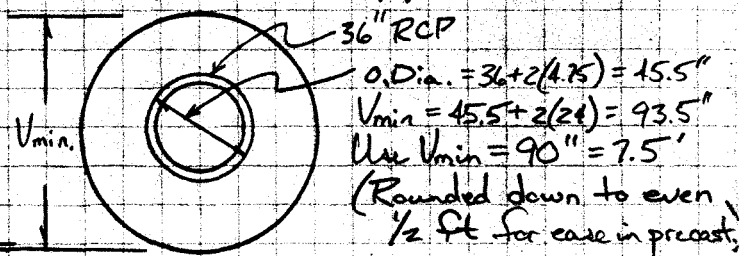 36" RCP
O.Dia. = 36+2(4.75) = 45.5"
Vmin. Vmin = 45.5+2(24) = 93.5"
Use Vmin = 90" = 7.5'
(Rounded down to even
1/2 ft for ease in precast)